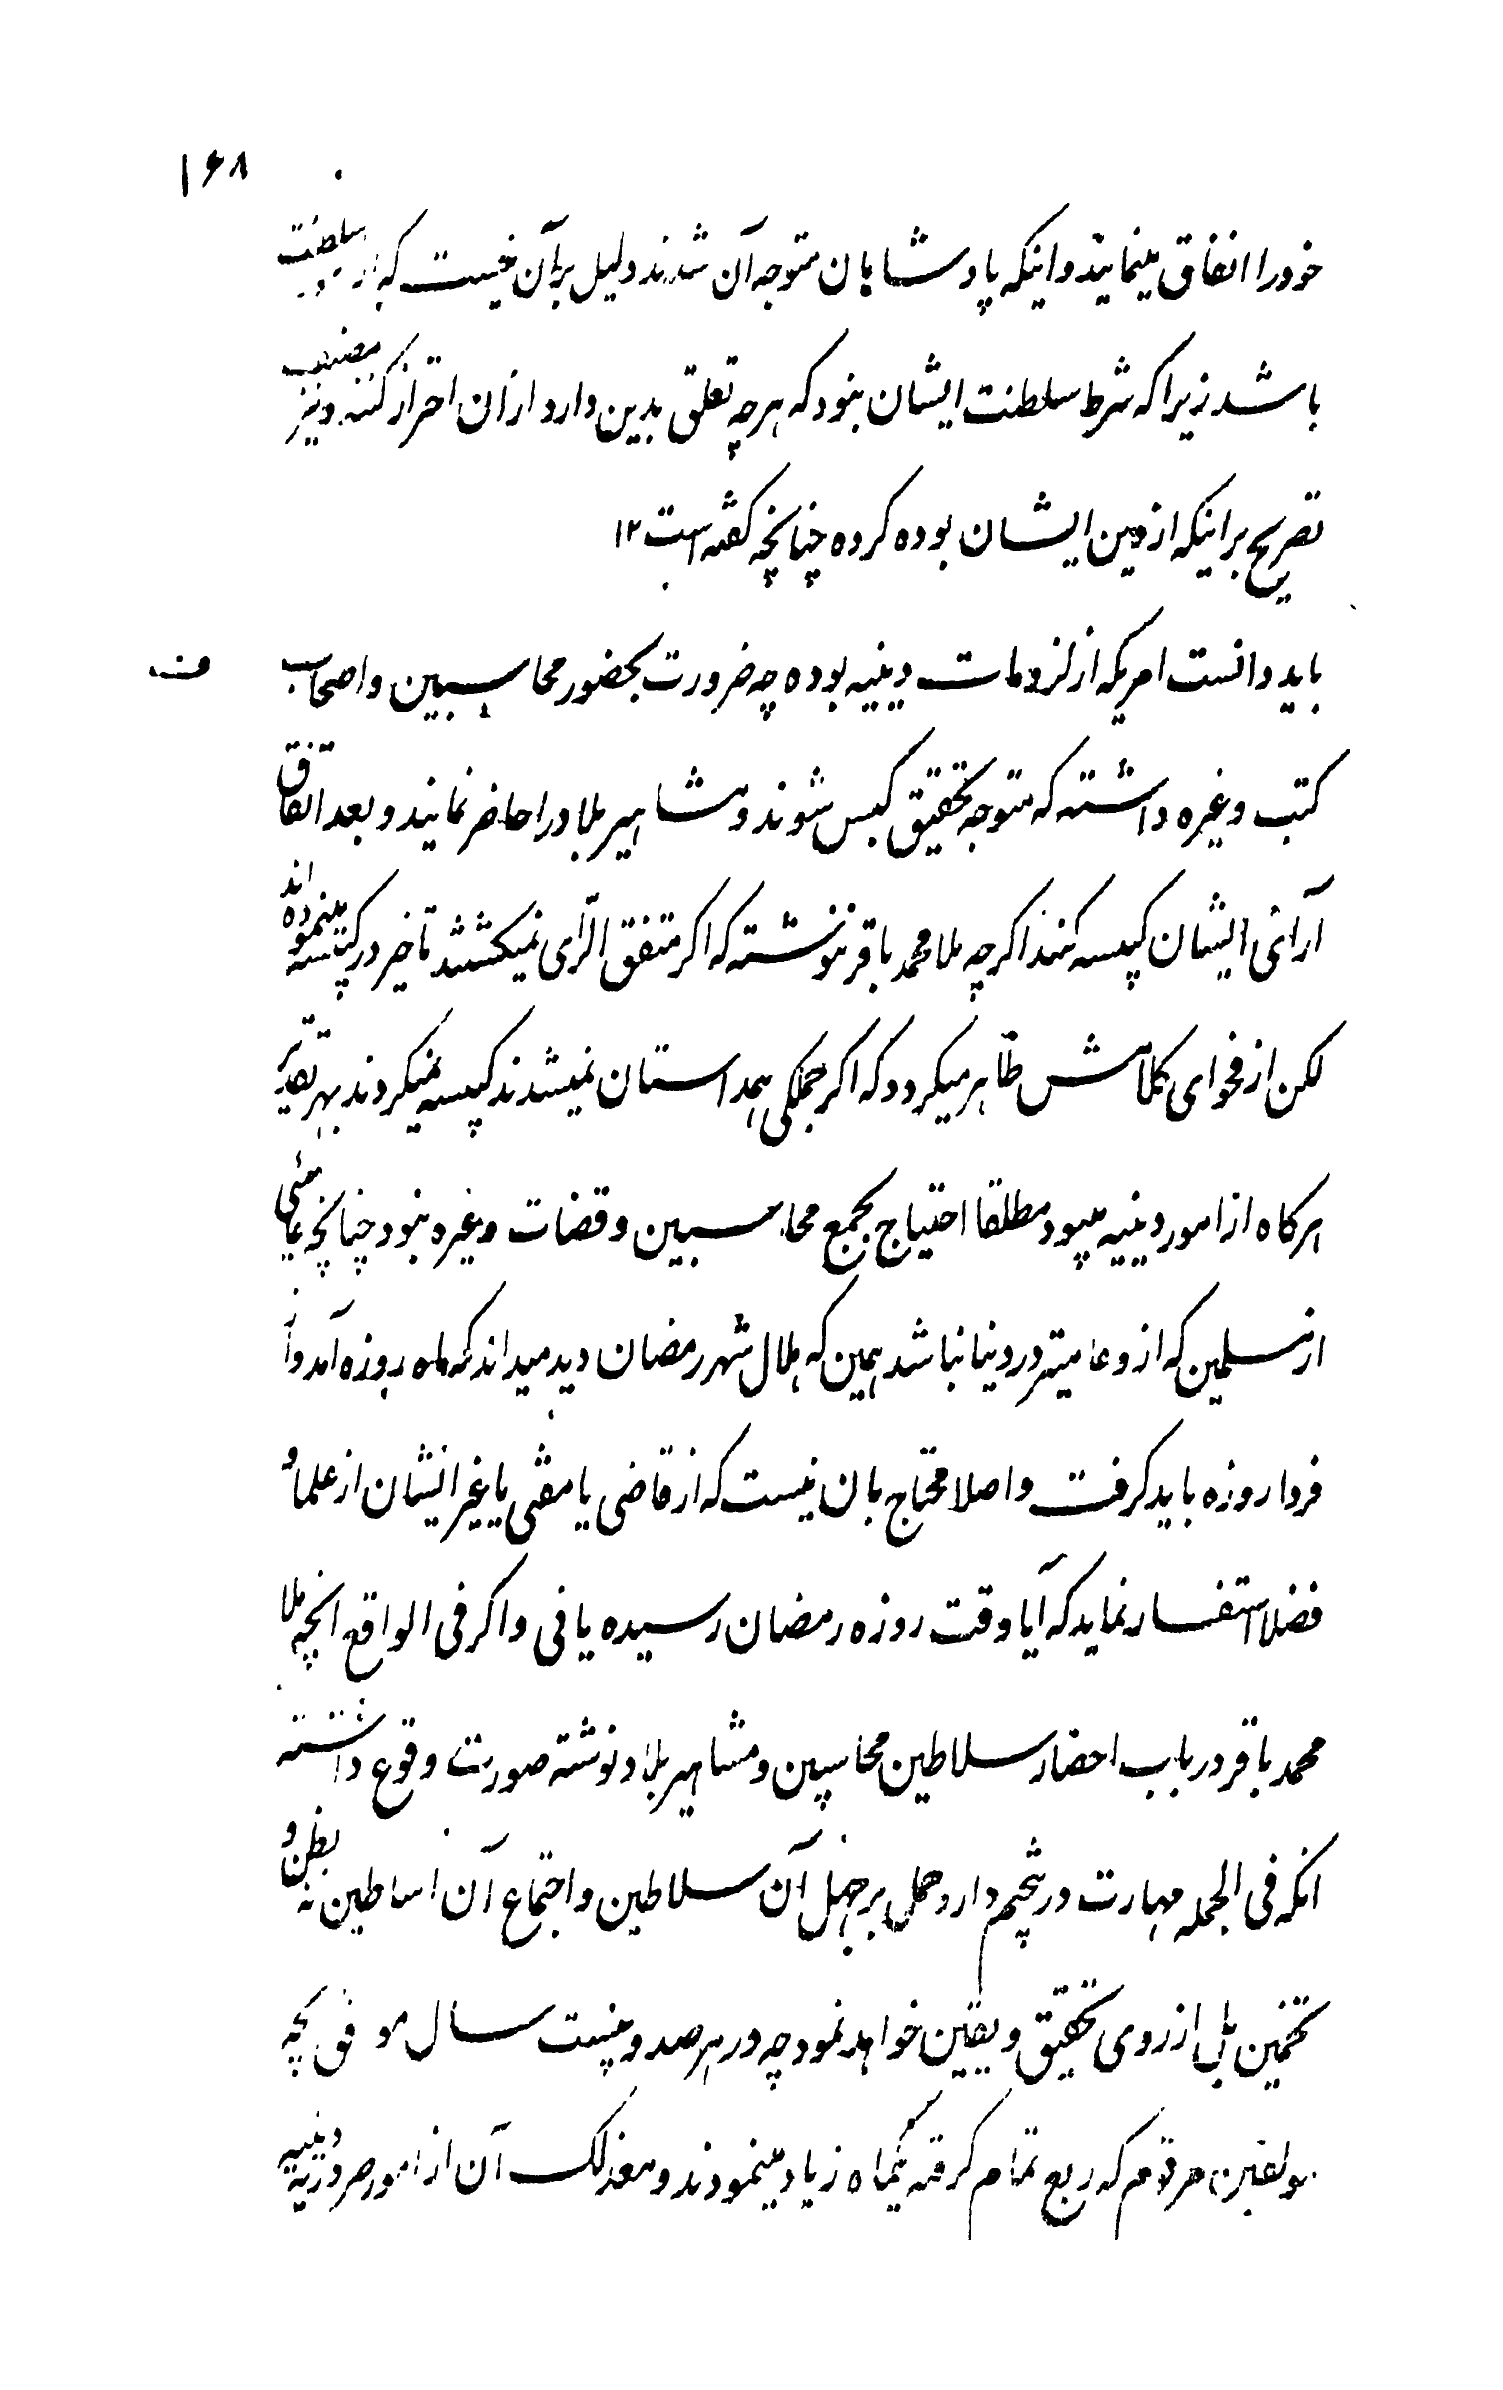 ۱۶۸
خود را انفاق مینمایند و اینکه پادشاهان متوجه آن شدند دلیل بر آن نیست که از سلطنت
باشد زیرا که شرط سلطنت ایشان بنود که هرچه تعلق بدین دارد ازان احتراز کنند و نیز مصنف
تصریح بر اینکه از دین ایشان بوده کرده چنانچه گفته است ۱۲
باید دانست امریکه از لزومات دینیه بوده چه ضرورت بحضور محاسبین و اصحاب
ف
کتب و غیره داشته که متوجه تحقیق کبس شوند و مشاهیر بلاد را حاضر نمایند و بعد اتفاق
آرائی ایشان کپیسه کنند اکرچه ملا محمد باقر نوشته که اکر متفق الرای نمیکشتند تاخیر در کپیسه مینموده اند
لکن از فحوای کلامش ظاهر میکردد که اکر جملکی همداستان نمیشدند کپیسه نمیکردند بهر تقدیر
هرکاه از امور دینیه میبود مطلقا احتیاج بجمع محاسبین و قضات و غیره بنود چنانچه عامئی
از مسلمین که ازو عامیتر در دنیا نباشد همین که هلال شهر رمضان دید میداند که ماه روزه آمد و از
فردا روزه باید کرفت و اصلا محتاج بان نیست که از قاضی یا مفتی یا غیر ایشان از علما و
فضلا استفسار نماید که آیا وقت روزه رمضان رسیده یا نی و اکر فی الواقع انچه ملا
محمد باقر در باب احضار سلاطین محاسبین و مشاهیر بلاد نوشته صورت وقوع داشته
انکه فی الجمله مهارت در نجوم دارد حمل بر جهل آن سلاطین و اجتماع آن اساطین نه بظن و
تخمین بل از روی تحقیق و یقین خواهد نمود چه در هر صد و بیست سال موافق بچه
مولفین مرقوم که ربع تمام کرفته یکماه زیاد مینمودند و معذلک آن از امور ضروریه دینیه